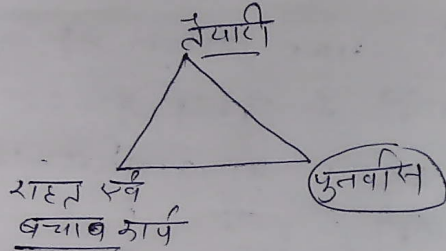 तैयारी
राहत एवं
बचाव कार्य
पुनर्वास